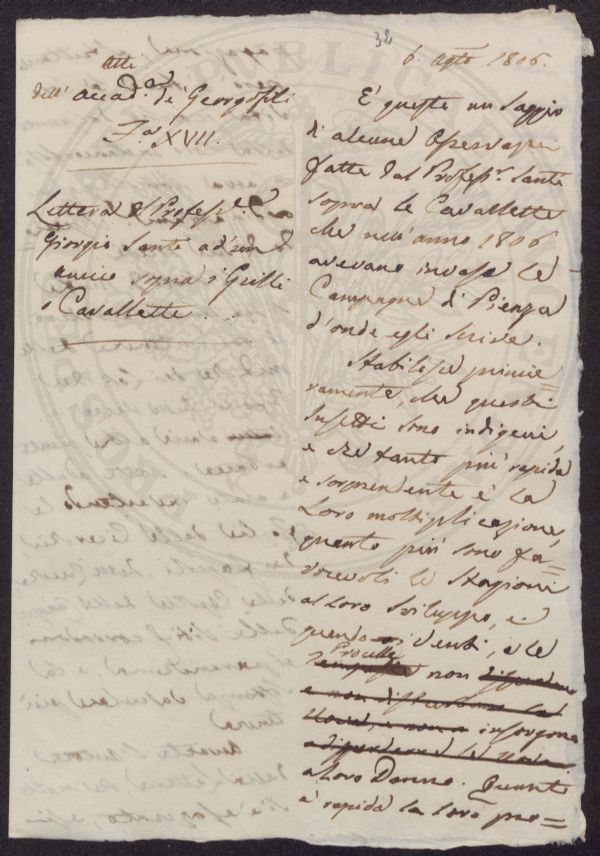 32
6. Agto 1806.
Atti
dell' Accad.a de' Georgofili
F.a XVII.
Lettera del Profess.e
Giorgio Santi ad un
amico sopra i Grilli
o Cavallette.
E' questo un Saggio
di alcune Osservazni
fatte dal Profess.r Santi
sopra le Cavallette
che nell' anno 1806
avevano invase le
Campagne di Pienza
d'onde egli scrive.
Stabilisce primie=
ramente, che questi
Insetti sono indigeni,
e che tanto più rapida
e sorprendente è la
Loro moltiplicazione,
quanto più sono fa=
vorevoli le Stagioni
al Loro Sviluppo, e
quando i Venti, e le
Procelle non
insorgono
a Loro Danno. Quanto
è rapida la loro pro=